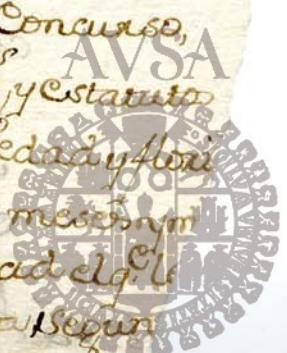 Concurso,
AVSA
y Estatutos
edad y flori
meses
ad el q.e
segun